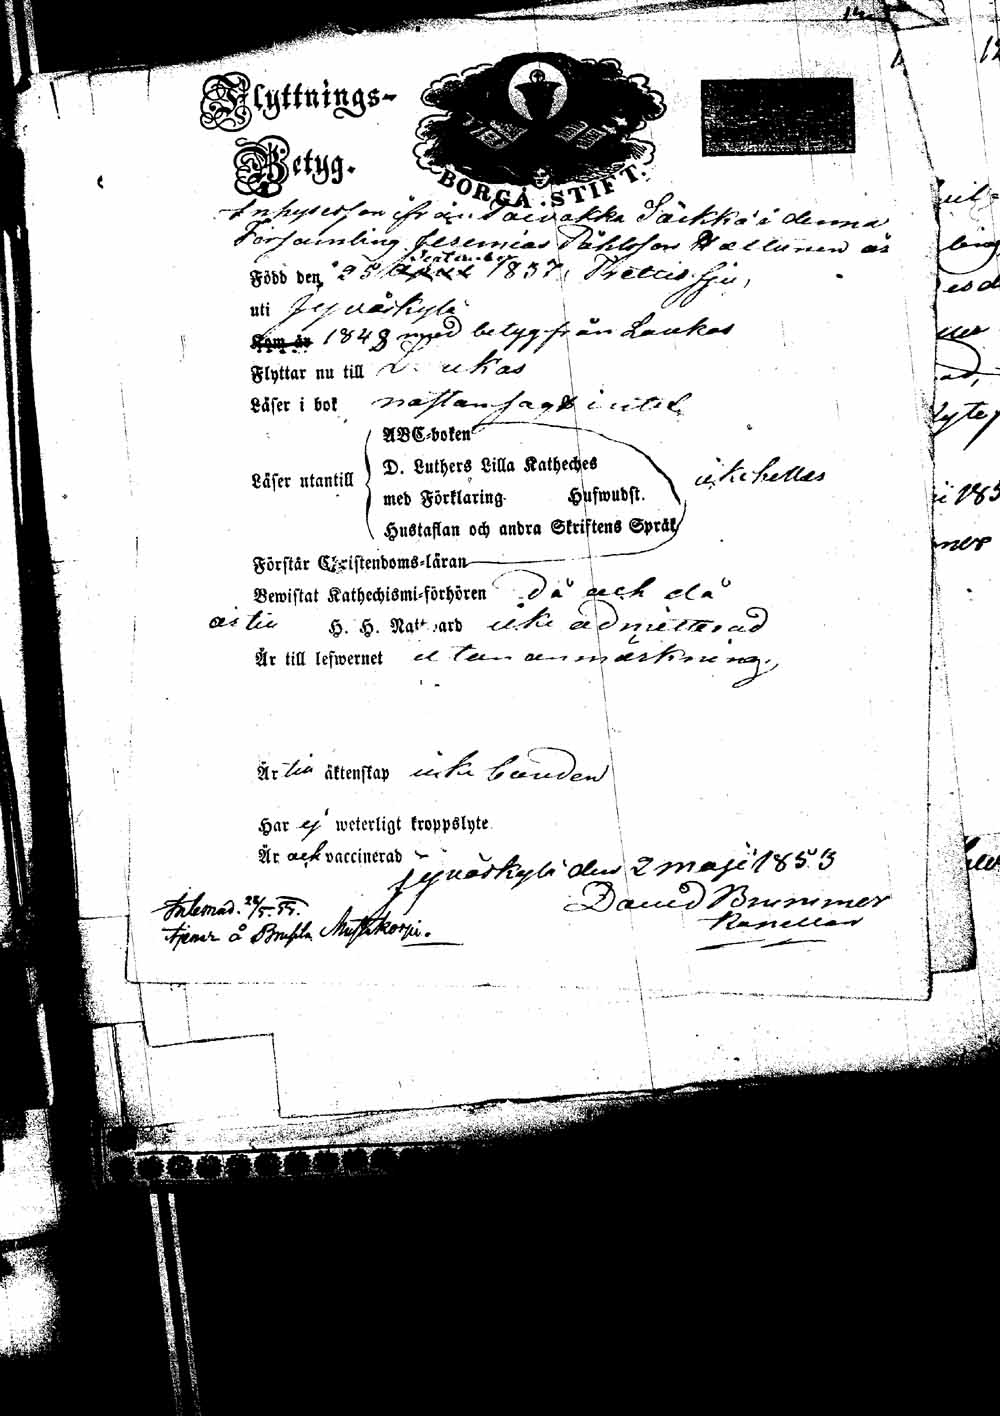 Flyttnings-
Betyg.
BORGÅ STIFT.
Inhyseson ifrån Toivakka Säkkä i denna
Församling Jeremias Påhlsson Hallunen är
September
Född den 25 April 1837, Trettisju,
uti Jyväskylä
Kom år 1848 med betyg från Laukas
Flyttar nu till Laukas
Läser i bok nästan sagdt intet
ABC-boken
D. Luthers Lilla Katheches
Läser utantill icke heller
med Förklaring. Hufwudst.
Hustaflan och andra Skriftens Språk
Förstår Christendoms-läran
Bewistat Kathechismi-förhören då och då
är till H. H. Nattward icke admitterad
Är till lefwernet utan anmärkning,
Är till äktenskap icke bunden
Har ej weterligt kroppslyte
Är och vaccinerad
Jyväskylä den 2 maji 1853
David Brummer
Kapellan
Inlemnad. 28/5. 53.
tjenar å